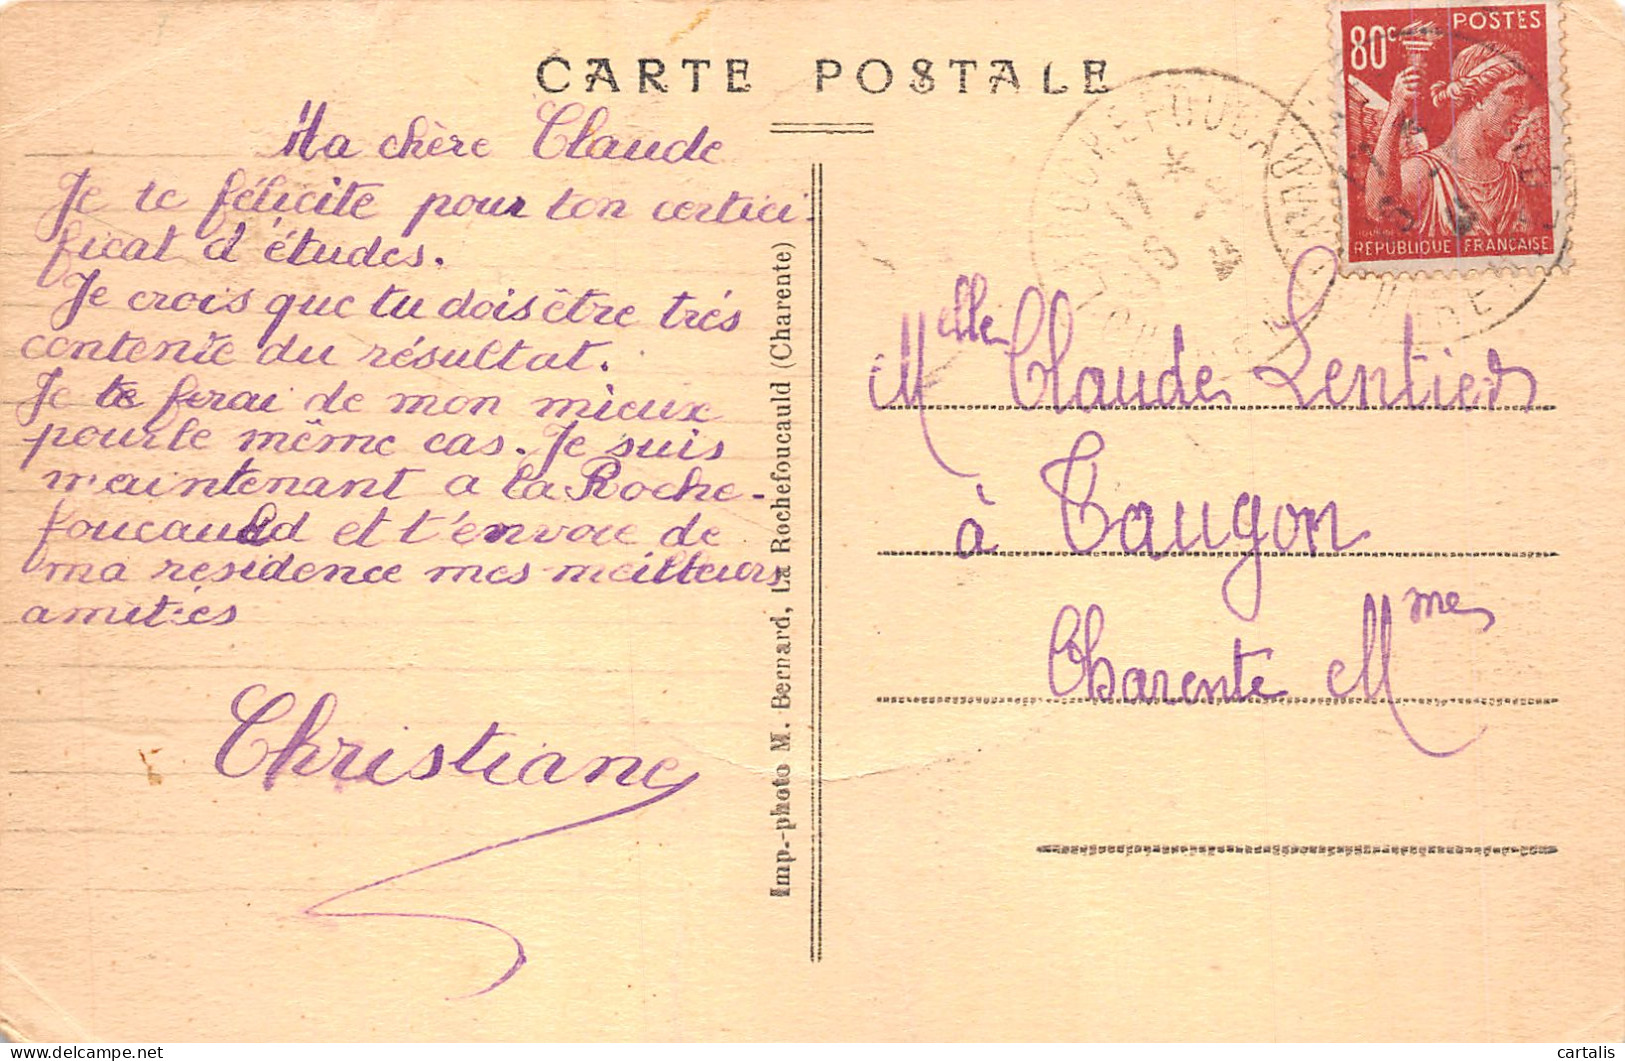 CARTE POSTALE
Ma chère Claude
Je te félicite pour ton certici-
ficat d'études.
Je crois que tu dois être trés
contente du résultat.
Je te ferai de mon mieux
pour le même cas. Je suis
maintenant a la Roche-
foucauld et t'envoie de
ma residence mes meilleurs
amitiés
Christiane
Imp.-photo M. Bernard, La Rochefoucauld (Charente)
80c POSTES
REPUBLIQUE FRANÇAISE
Melle Claude Lentier
à Taugon
Charente Mme
cartalis